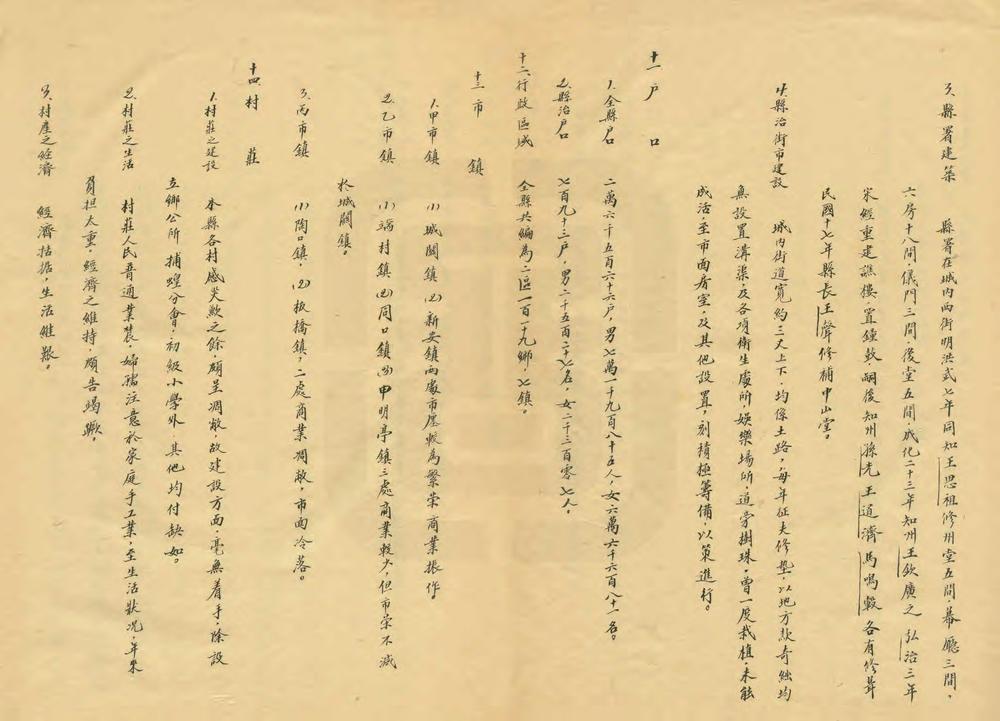 3. 縣署建築　縣署在城內西街明洪武七年同知王思祖修州堂五間、幕廳三間、
六房十八間、儀門三間、後堂五間、成化二十三年知州王欽廣之　弘治三年
宋經重建譙樓、置鐘鼓嗣後知州孫光　王道濟　馬鳴轂各有修葺
民國十七年縣長王聲修補中山堂。
4. 縣治街市建設　城內街道寬約三丈上下、均係土路、每年征夫修墊、以地方款奇絀均
無設置溝渠、及各項衛生處所娛樂場所、道旁樹珠、曾一度栽植、未能
成活、至市面房室、及其他設置、刻積極籌備、以策進行。
十一　戶　口
1. 全縣戶口　二萬六千五百六十六戶、男七萬一千九百八十五人、女、六萬六千六百八十一名。
2. 縣治戶口　七百九十三戶、男二千五百二十七名、女二千三百零七人。
十二、行政區域　全縣共編為二區一百一十九鄉、七鎮。
十三　市　鎮
1. 甲市鎮　(1) 城關鎮 (2) 新安鎮兩處市廛較為繁榮商業振作。
2. 乙市鎮　(1) 端村鎮 (2) 同口鎮 (3) 甲明亭鎮三處商業較少、但市容不減
於城關鎮。
3. 丙市鎮　(1) 陶口鎮、(2) 板橋鎮、二處商業凋敝、市面冷落。
十四　村　莊
1. 村莊之建設　本縣各村感災歉之餘、頗呈凋敝、故建設方面、毫無着手、除設
立鄉公所捕蝗分會、初級小學外、其他均付缺如。
2. 村莊之生活　村莊人民普通業農、婦孺注意於家庭手工業、至生活狀況、年來
負担太重、經濟之維持、頗告竭蹶。
3. 村產之經濟　經濟拮据、生活維艱。